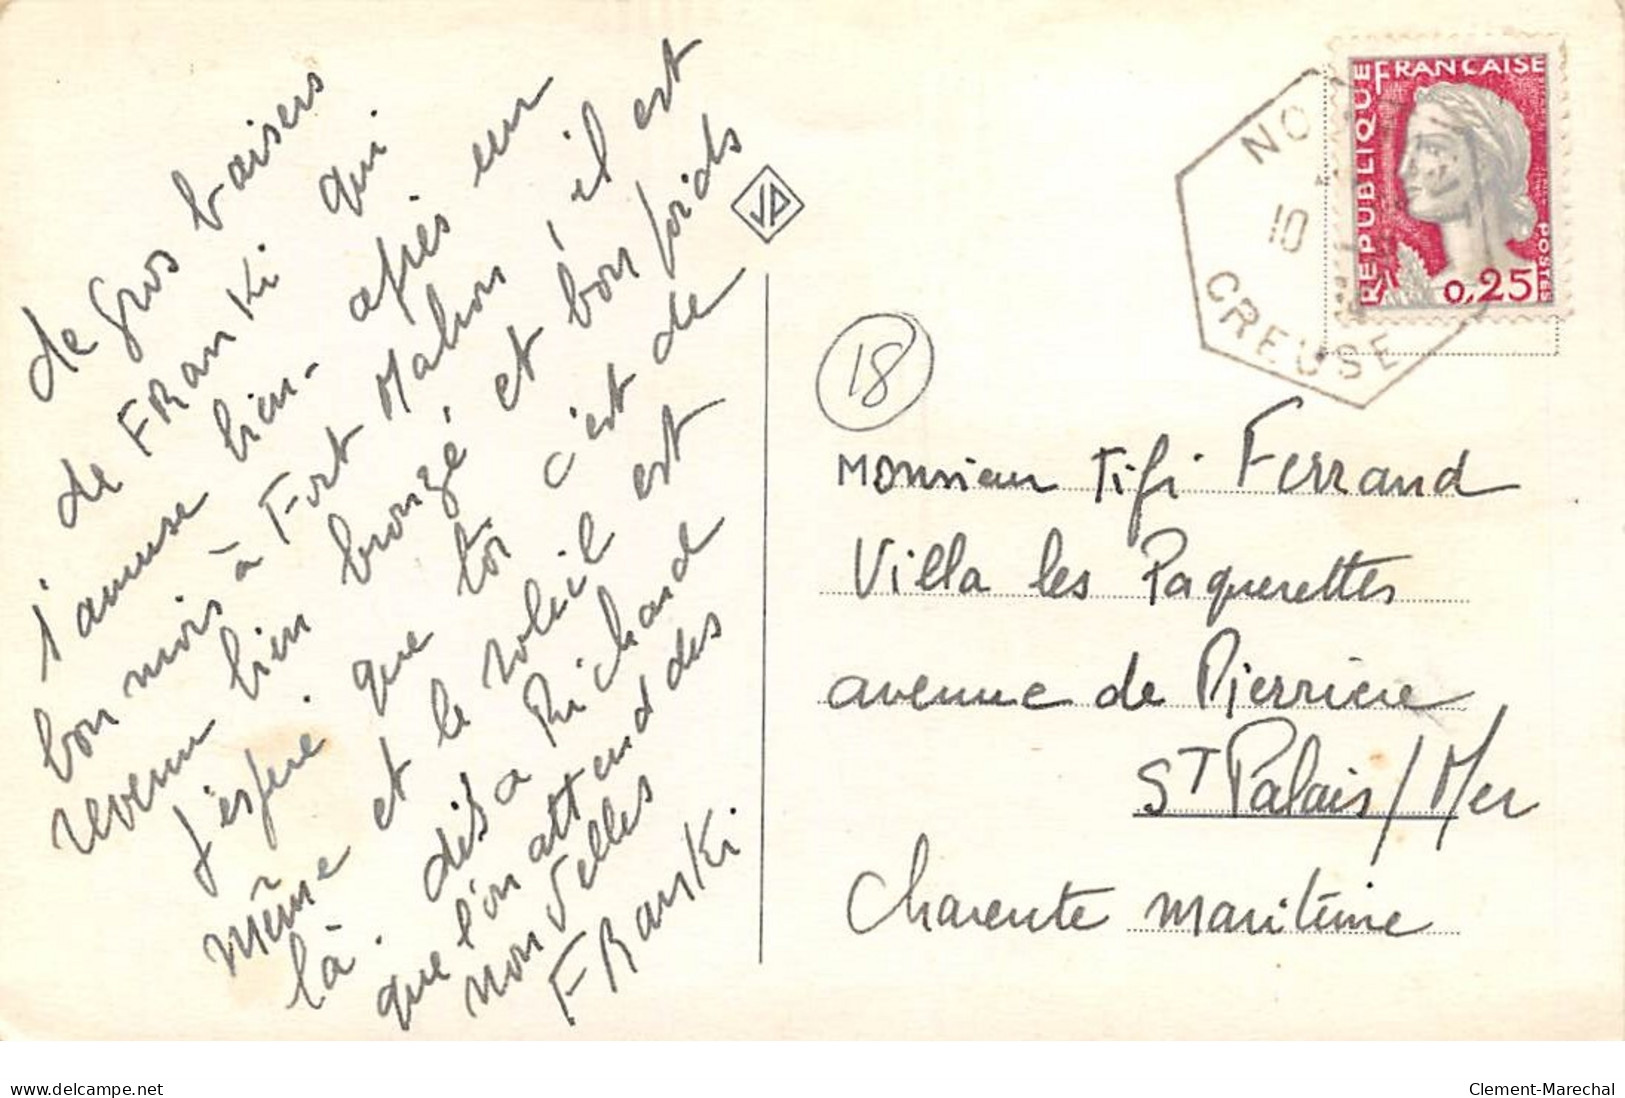 de gros baisers
de FRanKi qui
j'amuse bien - après un
bon mois à Fort Mahon il est
revenu bien bronzé et bon poids
j'espère que toi c'est de
même et le soleil est
là. dis à Richard
que l'on attend des
nouvelles
FRanKi
JA
18
REPUBLIQUE FRANÇAISE
POSTES
0,25
NO
10
CREUSE
Monsieur Tifi Ferrand
Villa les Paquerettes
avenue de Pierrière
ST Palais/Mer
Charente maritime
www.delcampe.net
Clement-Marechal